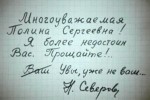 Многоуважаемая
Полина Сергеевна!
Я более недостоин
Вас. Прощайте!..
Ваш Увы, уже не ваш...
А. Северов,